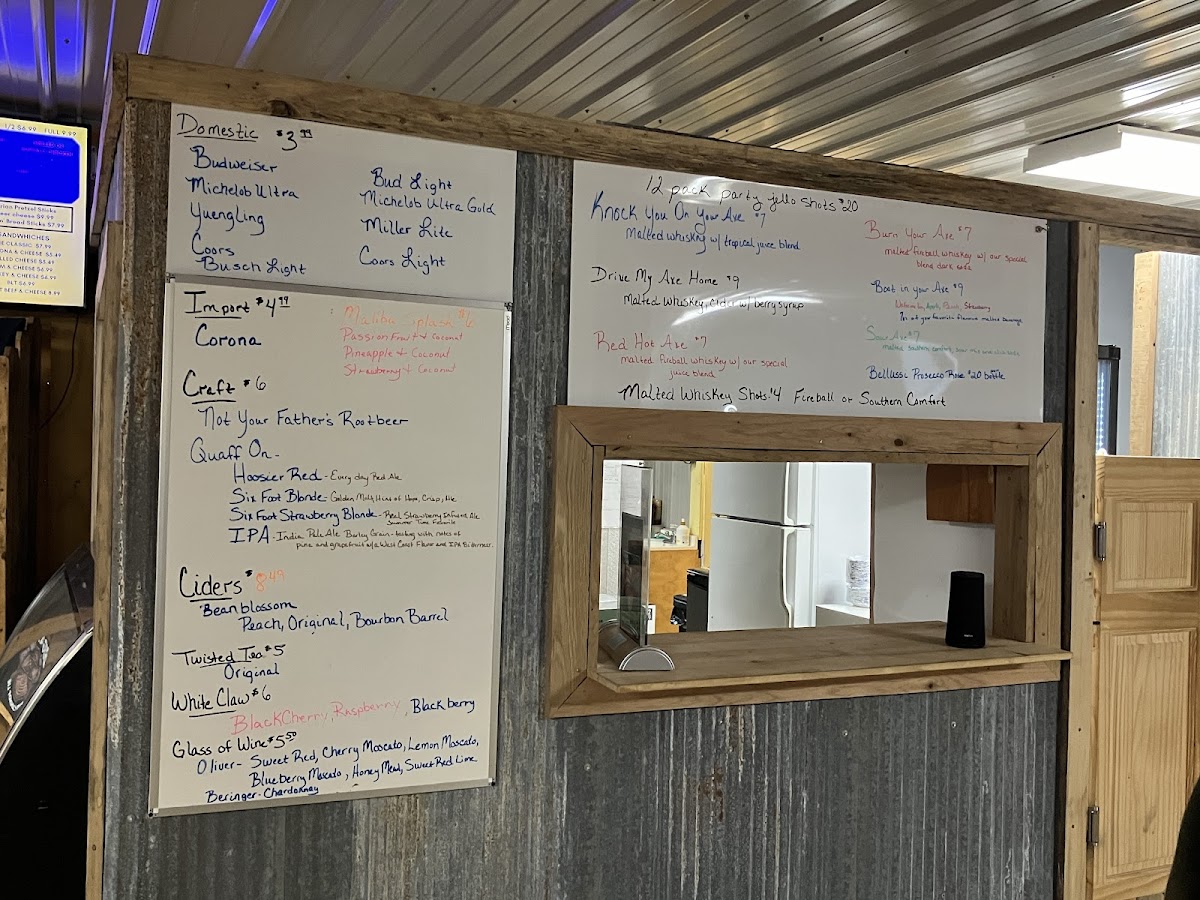 1/2 $6.99 FULL 9.99
Pretzel Sticks
beer cheese $9.99
Bread Sticks $7.99
SANDWHICHES
CLASSIC $7.99
& CHEESE $5.49
GRILLED CHEESE $3.49
& CHEESE $6.99
& CHEESE $6.99
BLT $6.99
BEEF & CHEESE 8.99
Domestic $3.99
Budweiser
Michelob Ultra
Yuengling
Coors
Busch Light
Bud Light
Michelob Ultra Gold
Miller Lite
Coors Light
Import $4.99
Corona
Malibu Splash $6
Passion Fruit & Coconut
Pineapple & Coconut
Strawberry & Coconut
Craft $6
Not Your Father's Rootbeer
Quaff On-
Hoosier Red - Every day Red Ale
Six Foot Blonde - Golden Malt, Hins of Hops, Crisp, Ale
Six Foot Strawberry Blonde - Real Strawberry Infused Ale
Summer Time Favorite
IPA - India Pale Ale Barley Grain - tasting with notes of
pine and grapefruit w/a West Coast Flavor and IPA Bitterness.
Ciders $8.49
Beanblossom
Peach, Original, Bourbon Barrel
Twisted Tea $5
Original
White Claw $6
Black Cherry, Raspberry, Blackberry
Glass of Wine $5.50
Oliver - Sweet Red, Cherry Moscato, Lemon Moscato,
Blueberry Moscato, Honey Mead, Sweet Red Lime
Beringer - Chardonnay
12 pack party jello shots $20
Knock You On Your Axe $7
Malted whiskey w/ tropical juice blend
Drive My Axe Home $9
Malted Whiskey, cider w/ berry syrup
Red Hot Axe $7
malted fireball whiskey w/ our special
juice blend
Burn Your Axe $7
malted fireball whiskey w/ our special
blend dark soda
Boot in your Axe $9
Watermelon, Apple, Peach, Strawberry
of your favorite flavored malted beverage
Sour Axe $7
malted southern comfort, sour mix
Bellussi Prosecco Rose $20 bottle
Malted Whiskey Shots $4 Fireball or Southern Comfort